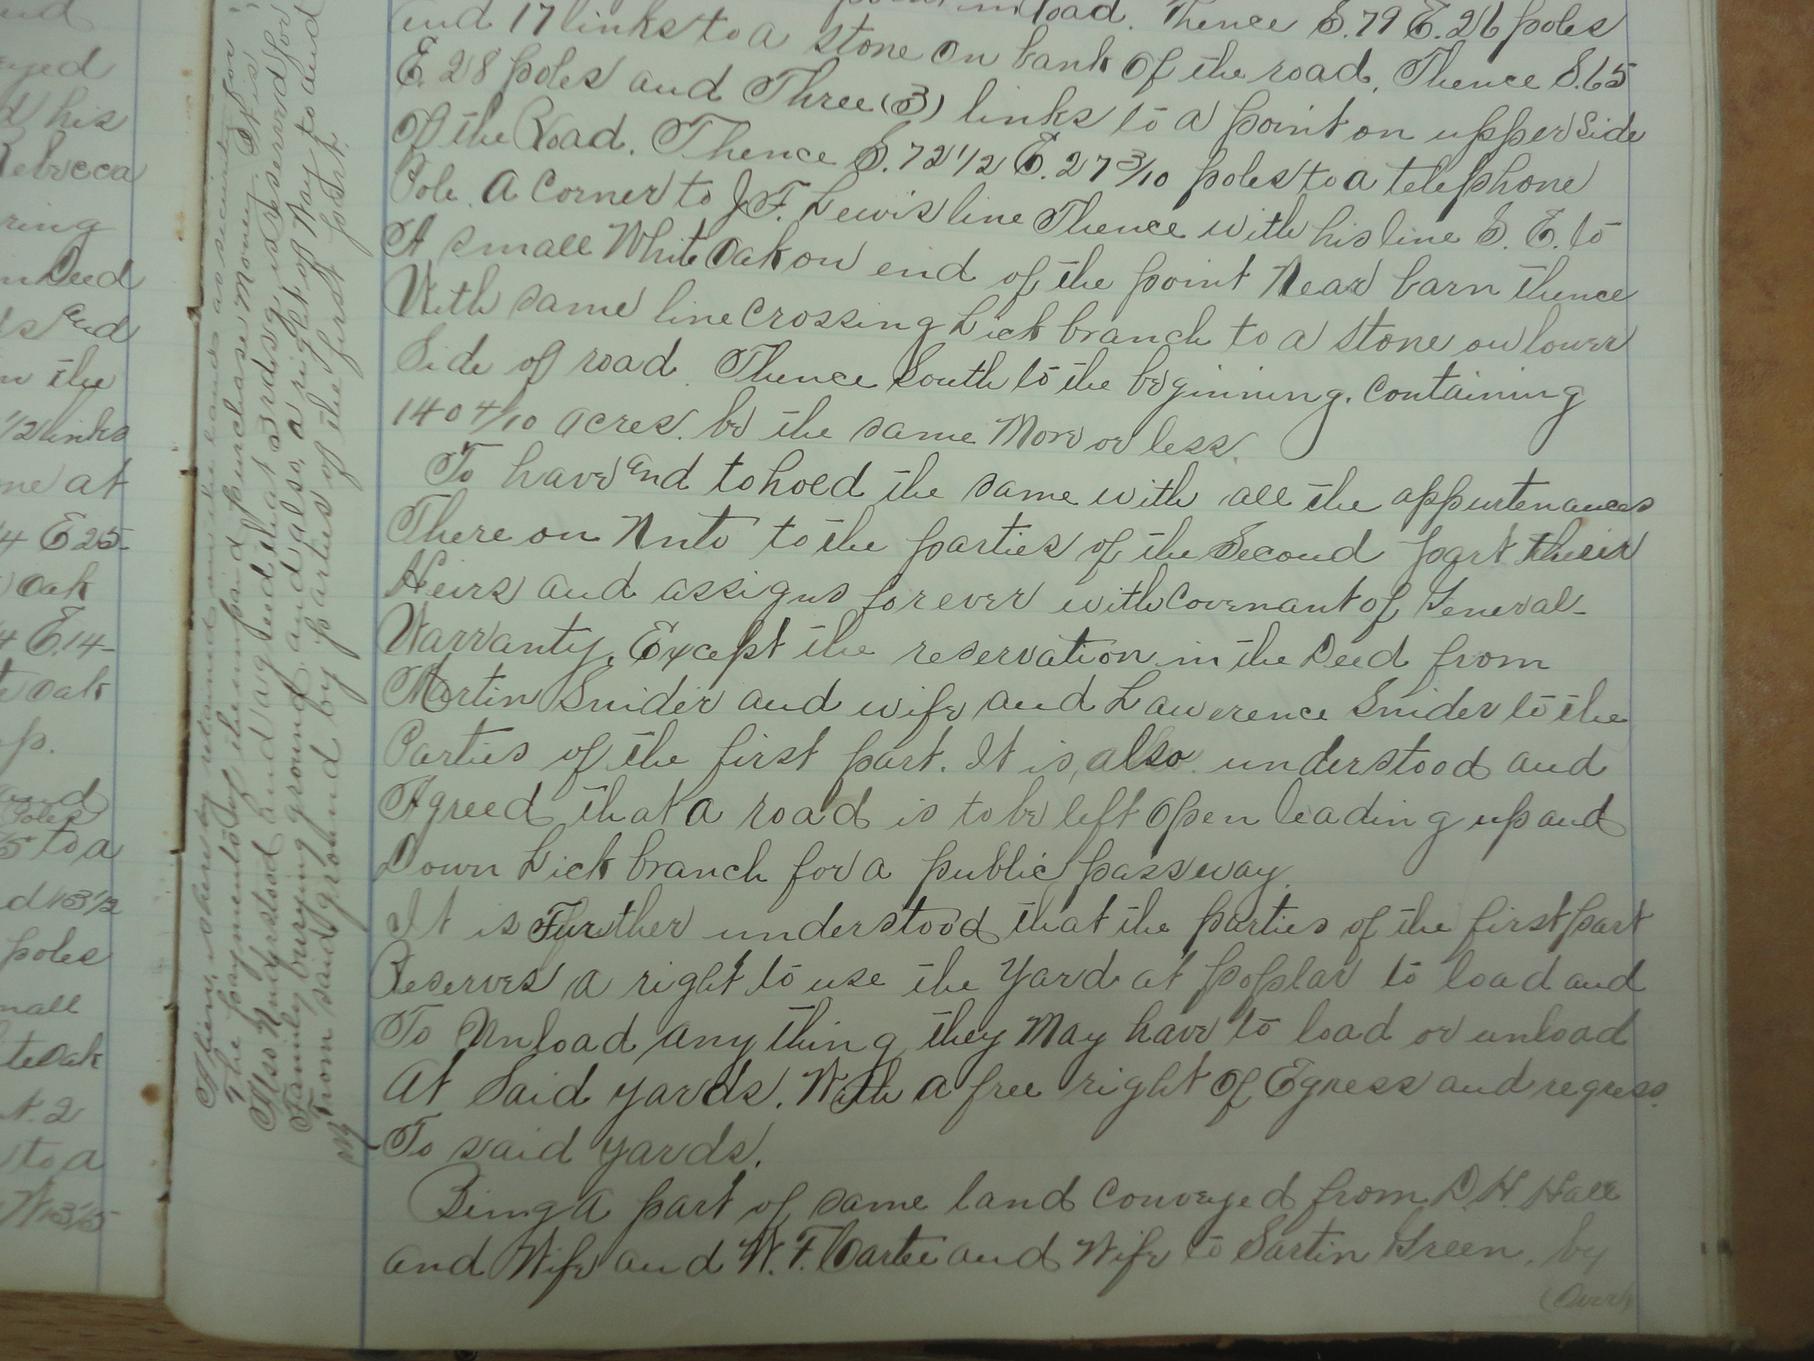 point in road. Thence S. 79 E. 26 poles
and 17 links to a stone on bank of the road, Thence S. 65
E. 28 poles and Three (3) links to a point on upper side
Of the Road. Thence S. 72 1/2 E. 27 3/10 poles to a telephone
Pole. A Corner to J.F. Lewis line Thence with his line S. E. to
A small White Oak on end of the point Near barn thence
With same line crossing Lick branch to a stone on lower
Side of road. Thence South to the beginning. Containing
140 4/10 acres. be the same More or less.
To have and to hold the same with all the appurtenances
There on Unto to the parties of the Second part their
Heirs and assigns forever with Covenant of General
Warranty, Except the reservation in the Deed from
Martin Snider and wife and Lawerence Snider to the
Parties of the first part. It is, also understood and
Agreed that a road is to be left Open leading up and
Down Lick branch for a public passway.
It is Further understood that the parties of the first part
Reserves a right to use the Yard at poplar to load and
To Unload any thing they May have to load or unload
At Said yards. With a free right Of Egress and regress
To said yards.
Being a part of same land conveyed from D.H. Hall
and Wife and W.F. Cartee and Wife to Sartin Green, by
(Over)
A lien is hereby retained on the lands as security for
The payment of the unpaid purchase money. It is
Also Understood and agreed that a grave yard is reserved for
Family burying ground, and also, a right of Way to and
From said ground by parties of the first part.
his
Rebecca
ring
in Deed
and
in the
1/2 links
at
4 E 25
Oak
4 E. 14
Oak
p.
Poles
5 to a
poles
mall
te Oak
. 2
to a